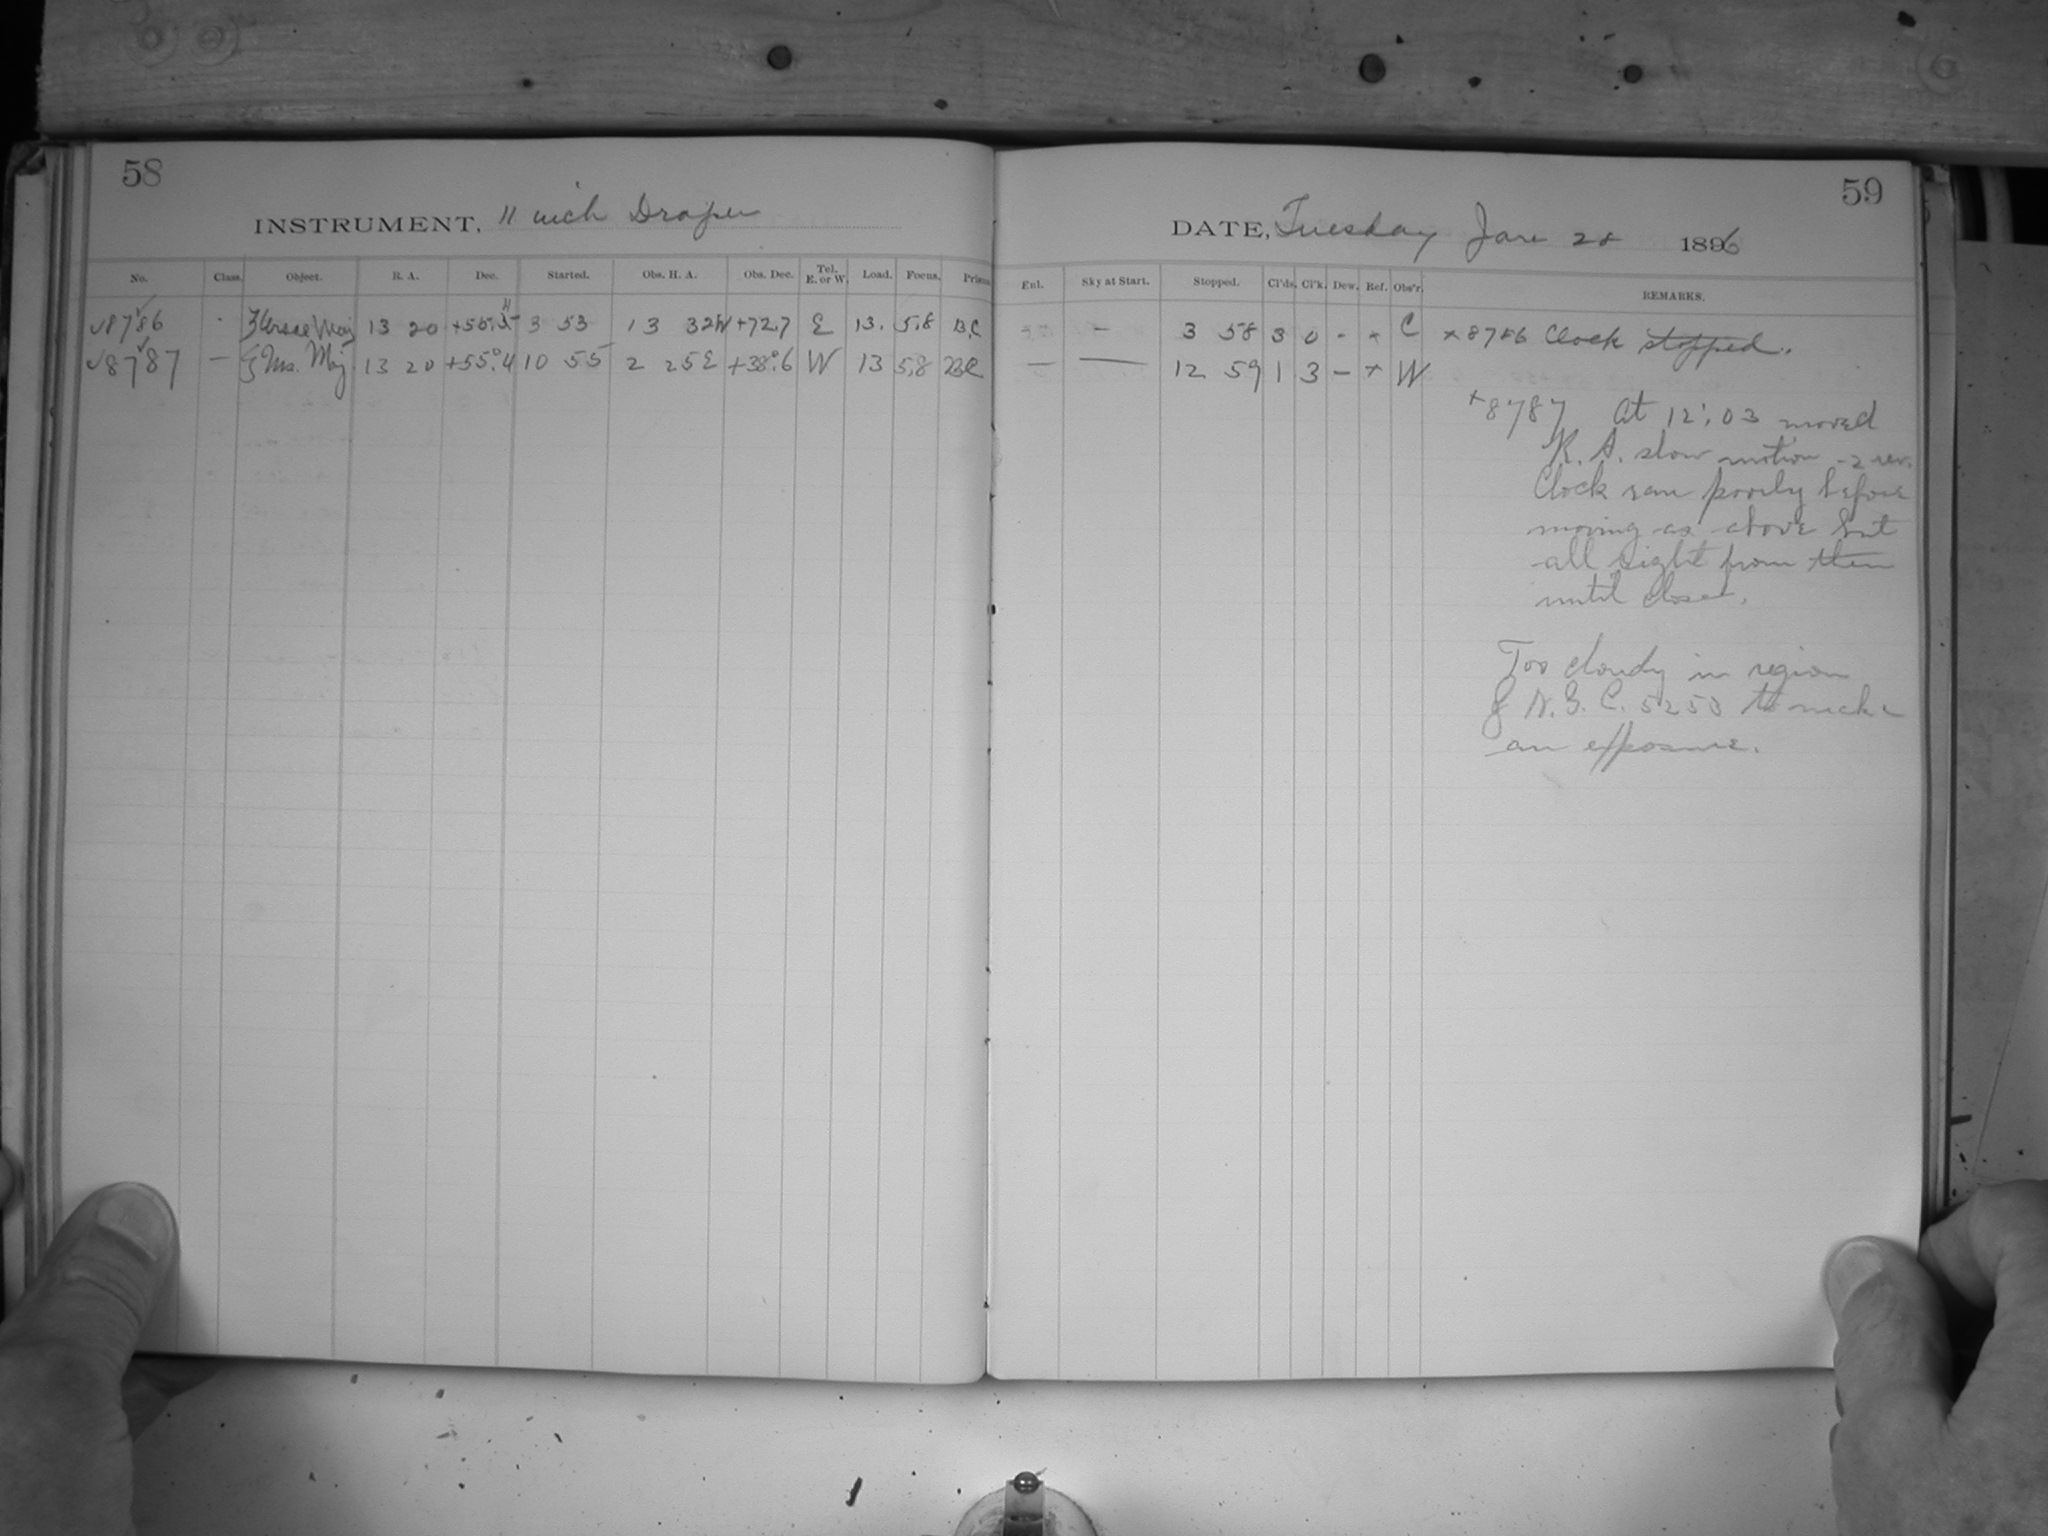 58
INSTRUMENT, 11 inch Draper
No. Class. Object. R. A. Dec. Started. Obs. H. A. Obs. Dec. Tel. E. or W. Load. Focus. Prism
√8786 Ursae Maj 13 20 +55. 3 53 13 32W +72.7 E 13. 5.8 B,C
√8787 — ζ Urs. Maj 13 20 +55°.4 10 55 2 25E +38°.6 W 13 5.8 BC
59
DATE, Tuesday Jan 28 1896
Enl. Sky at Start. Stopped. Cl'ds. Cl'k. Dew. Ref. Obs'r. REMARKS.
— 3 58 3 0 - × C × 8786 Clock stopped.
— — 12 59 1 3 — + W
+8787 At 12:03 moved
R. A. slow motion -2 rev.
Clock ran poorly before
moving as above but
all right from then
until close.
Too cloudy in region
of N. G. C. 5253 to make
an exposure.